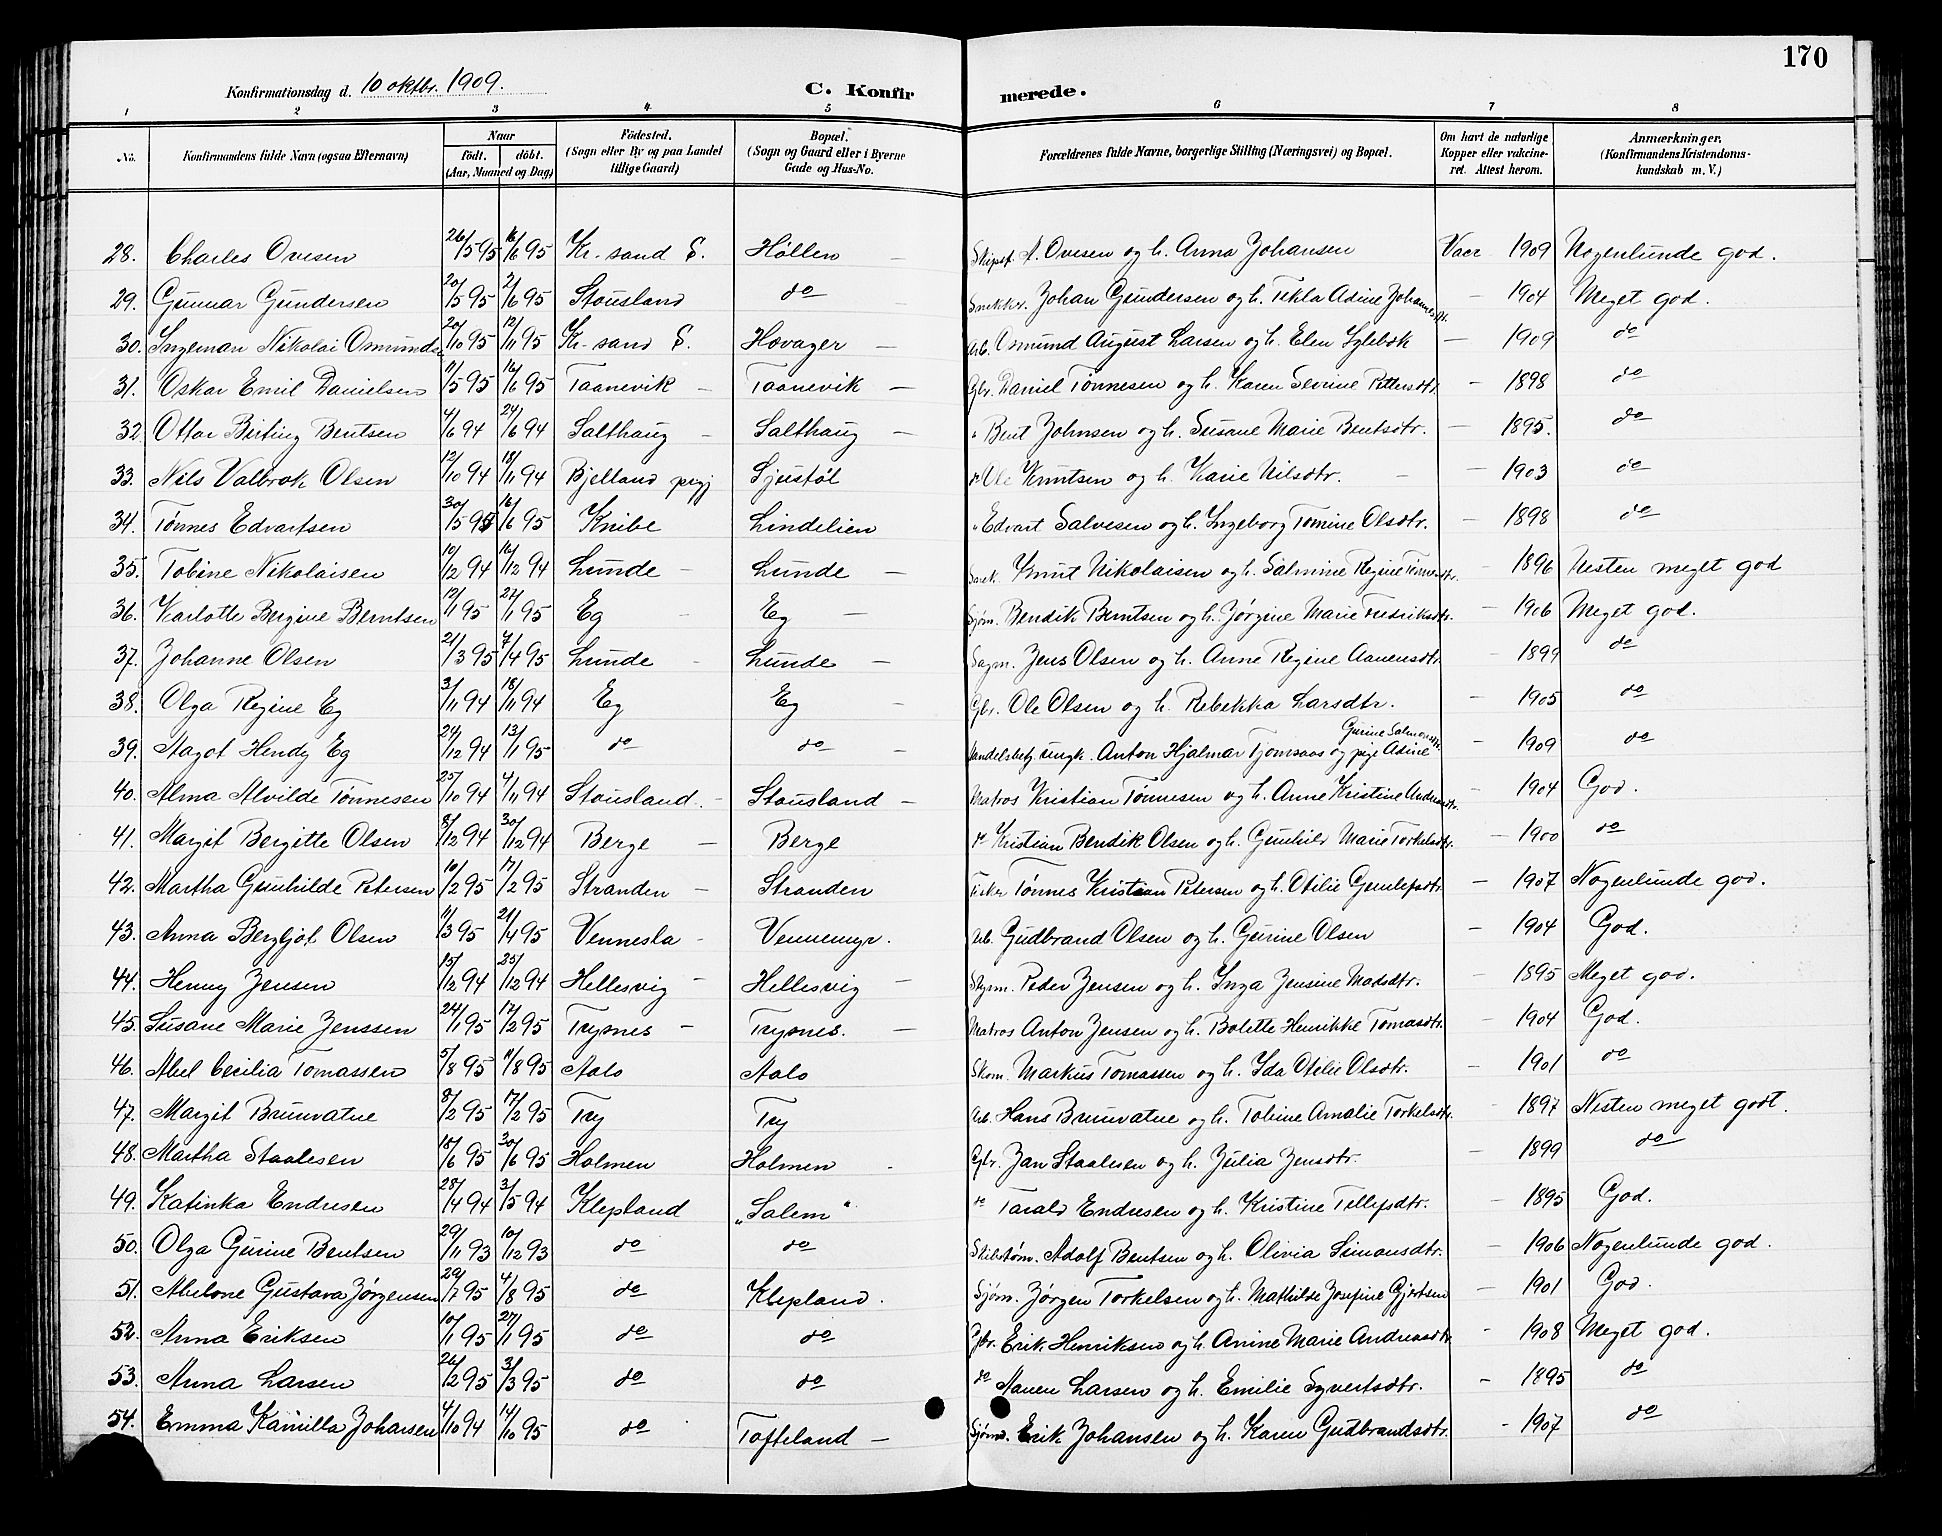 170
Konfirmationsdag d. 10 oktbr. 1909.
C. Konfirmerede.
1 2 3 4 5 6 7 8
No. Konfirmandens fulde Navn (ogsaa Efternavn) Naar født. døbt. (Aar, Maaned og Dag) Fødested. (Sogn eller By og paa Landet tillige Gaard) Bopæl. (Sogn og Gaard eller i Byerne Gade og Hus-No. Forældrenes fulde Navne, borgerlige Stilling (Næringsvei) og Bopæl. Om havt de naturlige Kopper eller vakcineret. Attest herom. Anmærkninger. (Konfirmandens Kristendomskundskab m. V.)
28. Charles Ovesen 26/5 95 16/6 95 Kr.sand S. Høllen Skipsf. A. Ovesen og h. Anna Johansen Vacc 1909 Nogenlunde god.
29. Gunnar Gundersen 20/5 95 2/6 95 Stousland do Snekker Johan Gundersen og h. Tekla Adine 1904 Meget god.
30. Ingeman Nikolai Osmundsen 20/10 95 12/11 95 Kr.sand S. Hovager Arb. Osmund August Larsen og h. Elen 1909 do
31. Oskar Emil Danielsen 11/5 95 16/6 95 Taanevik Taanevik Gbr. Daniel Tønnesen og h. Karen Severine Pettersdtr. 1898 do
32. Ottar Berting Bentsen 4/6 94 24/6 94 Salthaug Salthaug " Bent Johnsen og h. Susane Marie Bentsdtr. 1895. do
33. Nils Valbrok Olsen 12/10 94 18/11 94 Bjelland prgj Sjustøl do Ole Knutsen og h. Karie Nilsdtr. 1903 do
34. Tønnes Edvartsen 30/5 95 16/6 95 Knibe Lindelien " Edvart Salvesen og h. Ingeborg Tomine Olsdtr. 1898 do
35. Tobine Nikolaisen 10/12 94 16/12 94 Lunde Lunde Knut Nikolaisen og h. Salmine Regine 1896 Nesten meget god
36. Karlotte Bergine Berntsen 12/1 95 27/1 95 Eg Eg Sjøm. Bendik Berntsen og h. Jørgine Marie Fredriksdtr. 1906 Meget god.
37. Johanne Olsen 21/3 95 7/4 95 Lunde Lunde Sagm. Jens Olsen og h. Anne Regine Aanensdtr. 1899 do
38. Olga Regine Eg 3/11 94 18/11 94 Eg Eg Gbr. Ole Olsen og h. Rebekka Larsdtr. 1905 do
39. Aagot Hendy Eg 24/12 94 13/1 95 do do Handelsbetj. ungk. Anton Hjalmar Tjomsaas og pige Adine Gurine Salmonsdtr. 1909 do
40. Alma Alvilde Tønnesen 25/10 94 4/11 94 Stousland Stousland Matros Kristian Tønnesen og h. Anne Kristine Andreasdtr. 1904 God.
41. Margit Bergitte Olsen 8/12 94 30/12 94 Berge Berge do Kristian Bendik Olsen og h. Gunhild Marie Torkelsdtr. 1900 do
42. Martha Gunhilde Petersen 10/2 95 17/2 95 Stranden Stranden Fisker Tønnes Kristian Petersen og h. Otilie Gunlefsdtr. 1907 Nogenlunde god.
43. Anna Bergljot Olsen 11/3 95 21/4 95 Vennesla Vennemyr. Arb. Gudbrand Olsen og h. Gurine Olsen 1904 God.
44. Henny Jensen 15/12 94 25/12 94 Hellesvig Hellesvig Peder Jensen og h. Inga Jensine Madsdtr. 1895 Meget god.
45. Susane Marie Jenssen 24/1 95 17/2 95 Trysnes Trysnes. Matros Anton Jensen og h. Bolette Henrikke Tomasdtr. 1904 God.
46. Abel Cecilia Tomassen 5/8 95 11/8 95 Aalo Aalo Skom. Markus Tomassen og h. Ida Otilie Olsdtr. 1901 do
47. Margit Brunvatne 8/2 95 17/2 95 Try Try Arb. Hans Brunvatne og h. Tobine Amalie Torkelsdtr. 1897 Nesten meget godt.
48. Martha Staalesen 18/6 95 30/6 95 Holmen Holmen Gbr. Jan Staalesen og h. Julia Jensdtr. 1899 do
49. Katinka Endresen 28/4 94 3/5 94 Klepland "Salem" do Tarald Endresen og h. Kristine Tellefsdtr. 1895 God.
50. Olga Gurine Bentsen 29/11 93 10/12 93 do do Adolf Bentsen og h. Olivia Simonsdtr. 1906 Nogenlunde god.
51. Abelone Gustava Jørgensen 29/7 95 4/8 95 do Klepland. Sjøm. Jørgen Torkelsen og h. Mathilde Josefine Gjertsen 1901 God.
52. Anna Eriksen 10/1 95 27/1 95 do do Gbr. Erik Henriksen og h. Anine Marie Andreasdtr. 1908 Meget god.
53. Anna Larsen 26/2 95 3/3 95 do do do Aanen Larsen og h. Emilie Syvertsdtr. 1895 do
54. Emma Kamilla Johansen 4/10 94 14/10 95 do Tofteland Sjømd. Erik Johansen og h. Karen Gudbrandsdtr. 1907 do